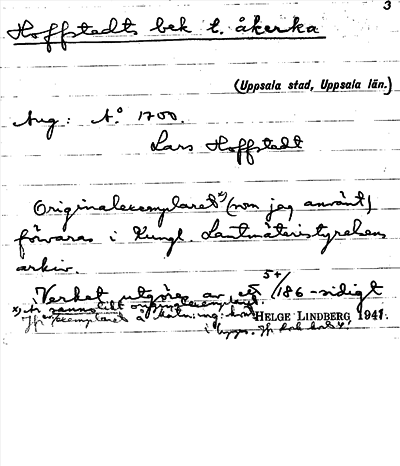 3
Hoffstedts bek t. åkerka
(Uppsala stad, Uppsala län.)
Aug: A:o 1700.
Lars Hoffstedt
Originalexemplaret x) (som jag använt)
förvaras i Kungl. Lantmäteristyrelsens
arkiv.
Verket utgöres av ett 5+/186-sidigt
x) Är sannolikt originalexemplaret.
Jfr exemplaret å
HELGE LINDBERG 1941.